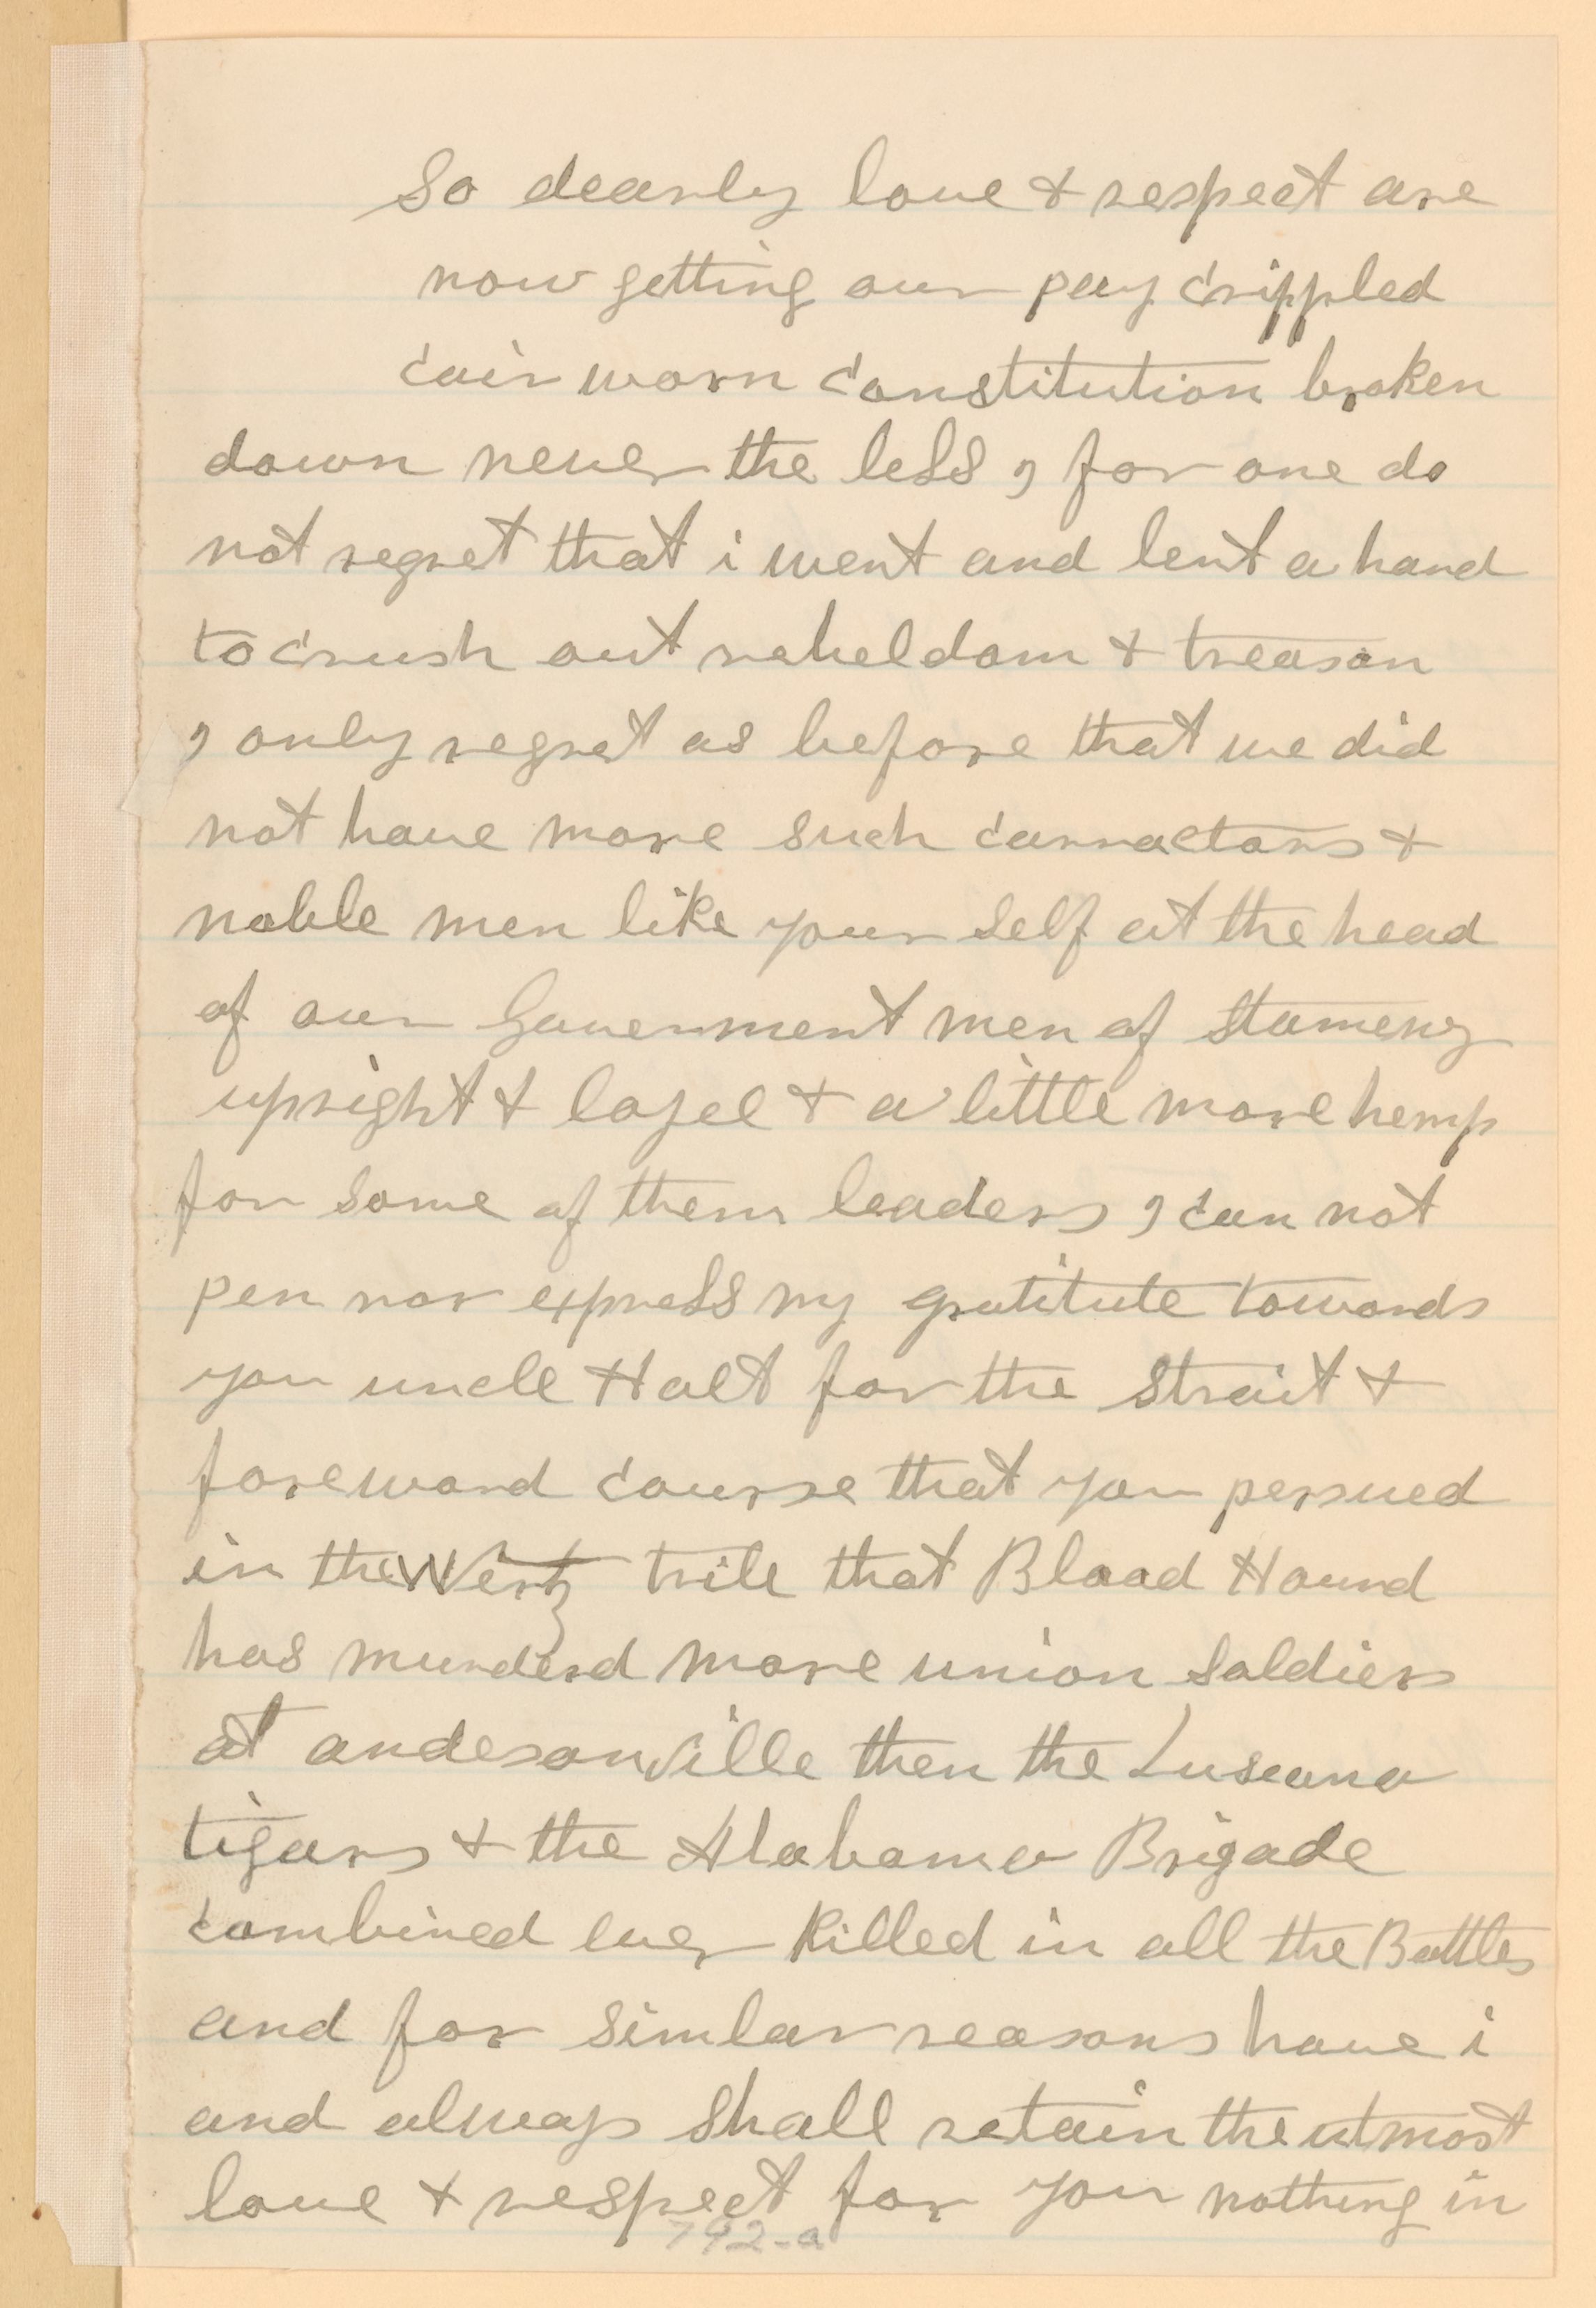 So dearly love & respect are
now getting our pay crippled
cair worn constitution broken
down never the less I for one do
not regret that i went and lent a hand
to crush out rebeldom & treason
I only regret as before that we did
not have more such carractors &
noble men like your self at the head
of our Government men of stameny
upright & loyel & a little more hemp
for some of them leaders I can not
pen nor express my gratitute towards
you uncle Holt for the strait &
foreward course that you persued
in the Wertz trile that Blood Hound
has murderd more union soldiers
at andersonville then the Luseana
tigars & the Alabama Brigade
combined ever killed in all the Battles
and for simlar reasons have i
and always shall retain the utmost
love & respect for you nothing in
792-a